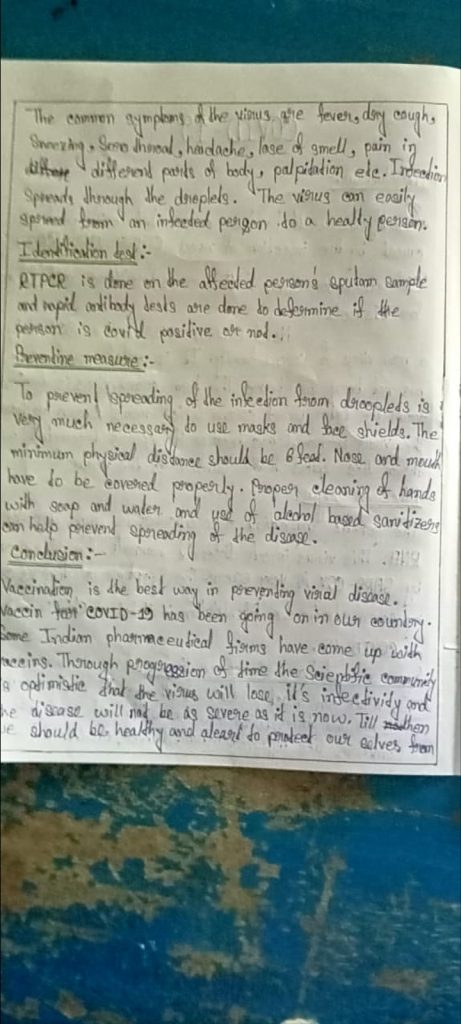 The common symptoms of the virus are fever, dry cough,
Sneezing, Sore throat, headache, lose of smell, pain in
different parts of body, palpitation etc. Infection
Spreads through the droplets. The virus can easily
spread from an infected person to a healty person.
Identification test:-
RTPCR is done on the affected person's sputam sample
and rapid antibody tests are done to determine if the
person is covid positive or not.
Preventine measure:-
To prevent spreading of the infection from droopleds is
very much necessary to use masks and face shields. The
minimum physical distance should be 6 feat. Nose and mouth
have to be covered properly. Proper cleaning of hands
with soap and water and use of alcohol based sanitizers
can help prevent spreading of the disase.
Conclusion:-
Vaccination is the best way in preventing virial disase.
Vaccin for COVID-19 has been going on in our country.
Some Indian pharmaceutical firms have come up with
vaccins. Through progression of time the community
is optimistic that the virus will lose it's infectividy and
he disase will not be as severe as it is now. Till then
we should be healthy and aleart to protect our selves from